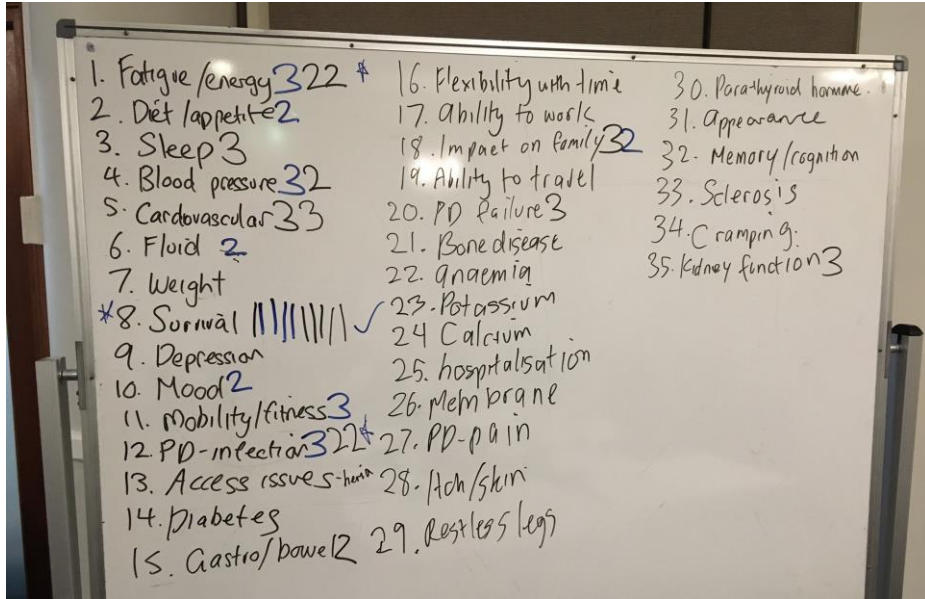 1. Fatigue/energy 3 2 2 *
2. Diet/appetite 2
3. Sleep 3
4. Blood pressure 3 2
5. Cardovascular 3 3
6. Fluid 2
7. Weight
*8. Survival |||||||||| ✓
9. Depression
10. Mood 2
11. Mobility/fitness 3
12. PD-infection 3 2 2 *
13. Access issues-hernia
14. Diabetes
15. Gastro/bowel 2
16. Flexibility with time
17. ability to work
18. Impact on family 3 2
19. Ability to travel
20. PD failure 3
21. Bone disease
22. anaemia
23. Potassium
24 Calcium
25. hospitalisation
26. Membrane
27. PD-pain
28. Itch/skin
29. Restless legs
30. Parathyroid hormone.
31. appearance
32. Memory/cognition
33. Sclerosis
34. Cramping.
35. Kidney function 3